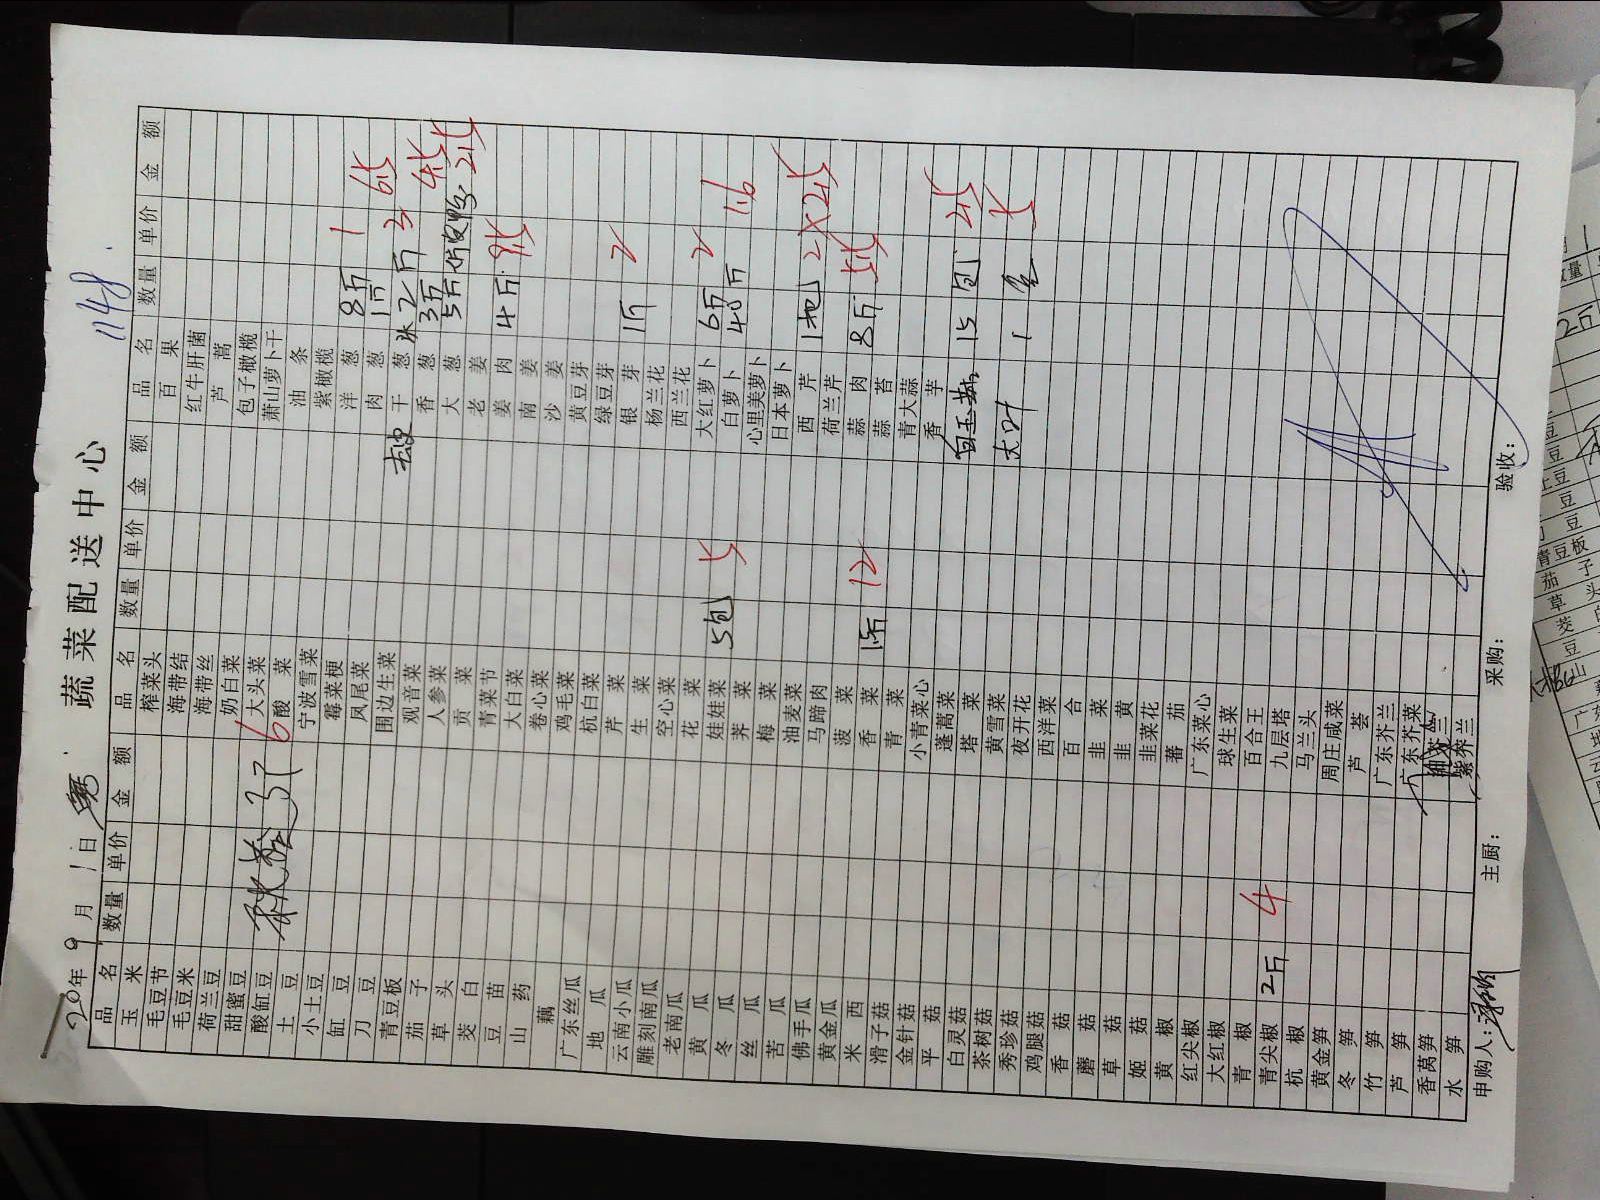 蔬菜配送中心
1148
20年9月1日
品名 数量 单价 金额 品名 数量 单价 金额 品名 数量 单价 金额
玉米 榨菜头 百果
毛豆节 海带结 红牛肝菌
毛豆米 海带丝 芦蒿
荷兰豆 奶白菜 包子橄榄
甜蜜豆 大头菜 萧山萝卜干
酸缸豆 酸菜 油条
土豆 宁波雪菜 紫橄榄
小土豆 霉菜梗 洋葱 8斤 1
缸豆 凤尾菜 肉葱 1斤 6.5
刀豆 围边生菜 干葱 2斤 3
青豆板 观音菜 香葱 3斤 4.5
茄子 人参菜 大葱 5斤 2.5
草头 贡菜 老姜
茭白 青菜节 姜肉 4斤 9.5
豆苗 大白菜 南姜
山药 卷心菜 沙姜
藕 鸡毛菜 黄豆芽
广东丝瓜 杭白菜 绿豆芽
地瓜 芹菜 银芽 1斤 2
云南小瓜 生菜 杨兰花
雕刻南瓜 空心菜 西兰花
老南瓜 花菜 大红萝卜 6斤 2
黄瓜 娃娃菜 5包 5 白萝卜 40斤 1.6
冬瓜 荠菜 心里美萝卜
丝瓜 梅菜 日本萝卜
苦瓜 油麦菜 西芹 1把 2×2.5
佛手瓜 马蹄肉 荷兰芹
黄金瓜 菠菜 蒜肉 8斤 5.5
米西 香菜 1斤 12 蒜苔
滑子菇 青菜 青大蒜
金针菇 小青菜心 香芋
平菇 蓬蒿菜 白玉菇 15包 2.5
白灵菇 塔菜
茶树菇 黄雪菜 大叶 1
秀珍菇 夜开花
鸡腿菇 西洋菜
香菇 百合
蘑菇 韭菜
草菇 韭黄
姬菇 韭菜花
黄椒 蕃茄
红尖椒 广东菜心
大红椒 球生菜
青椒 百合王
青尖椒 2斤 4 九层塔
杭椒 马兰头
黄金笋 周庄咸菜
冬笋 芦荟
竹笋 广东芥兰
芦笋 广东芥菜
香莴笋
水笋 紫芥兰
申购人: 主厨: 采购: 验收: